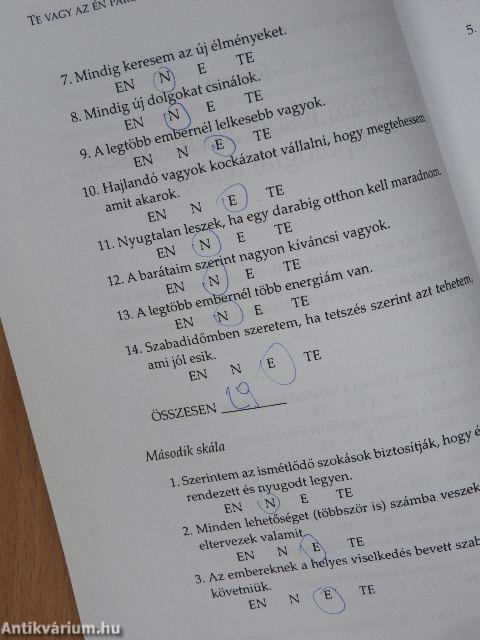 TE VAGY AZ ÉN
7. Mindig keresem az új élményeket.
EN N E TE
8. Mindig új dolgokat csinálok.
EN N E TE
9. A legtöbb embernél lelkesebb vagyok.
EN N E TE
10. Hajlandó vagyok kockázatot vállalni, hogy megtehessem
amit akarok.
EN N E TE
11. Nyugtalan leszek, ha egy darabig otthon kell maradnom.
EN N E TE
12. A barátaim szerint nagyon kíváncsi vagyok.
EN N E TE
13. A legtöbb embernél több energiám van.
EN N E TE
14. Szabadidőmben szeretem, ha tetszés szerint azt tehetem,
ami jól esik.
EN N E TE
ÖSSZESEN 19
Második skála
1. Szerintem az ismétlődő szokások biztosítják, hogy
rendezett és nyugodt legyen.
EN N E TE
2. Minden lehetőséget (többször is) számba veszek
eltervezek valamit.
EN N E TE
3. Az embereknek a helyes viselkedés bevett
követniük.
EN N E TE
5.
Antikvárium.hu